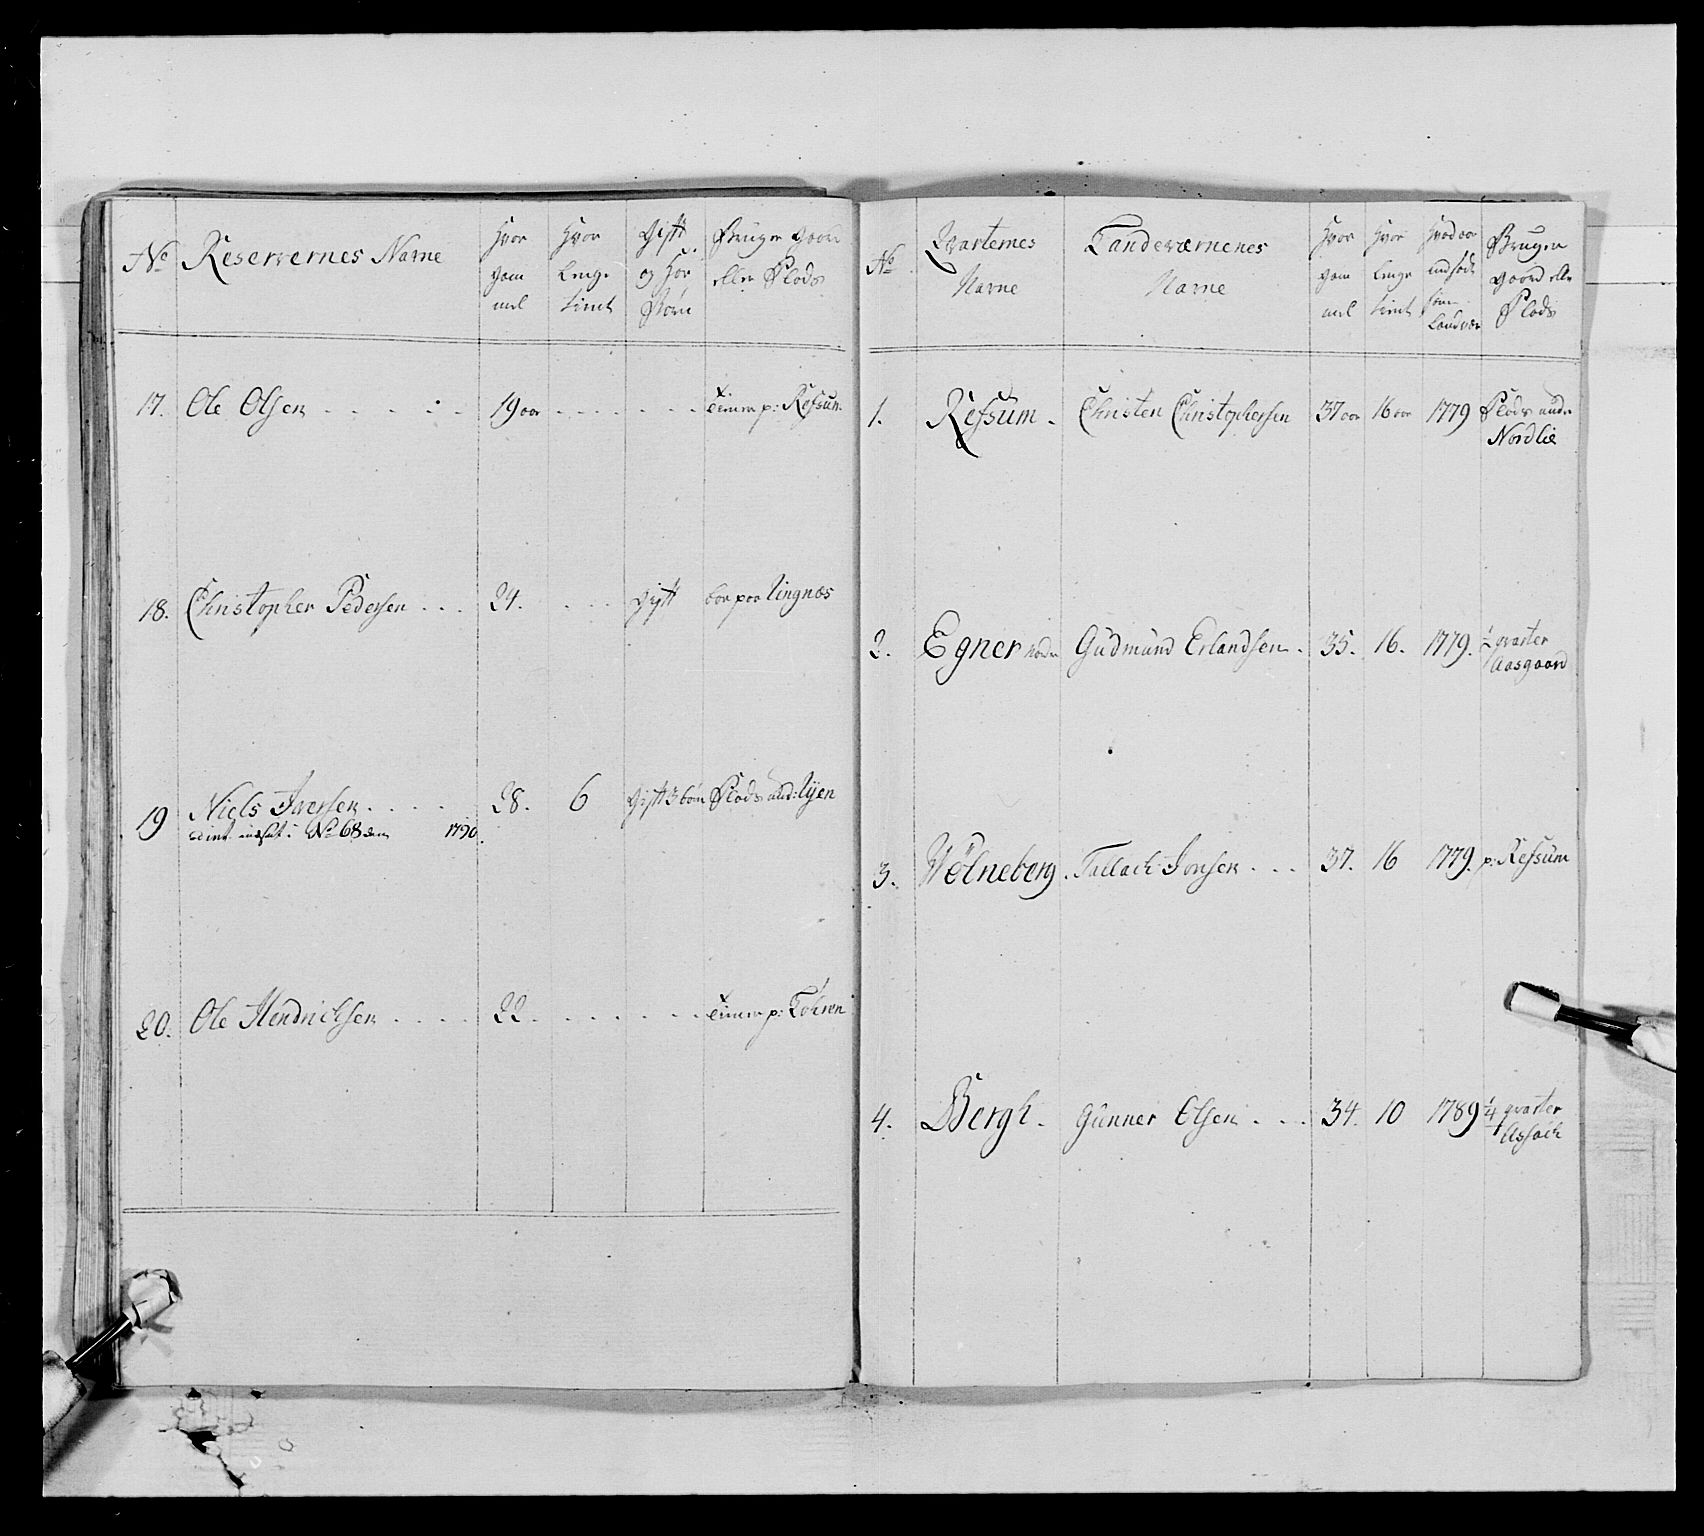 No
Reservernes Navne
Hvor
gam
mel
Hvor
lenge
tient
Gift
og har
Børn
Bruger gaard
eller Plads
17. Ole Olsen 19 aar tiener p: Refsum
18. Christopher Pedersen 24. gift boer paa Lingnæs
19 Niels Iversen 28. 6 gift 3 børn Plads und: Lyen
No 68 den 1790.
20. Ole Hendrichsen 22 tiener p:
No
Qvarternes
Navne
Landeværnenes
Navne
Hvor
gam
mel
Hvor
lenge
tient
Hvad aar
indsadt
som
Landvær
Bruger
gaard eller
Plads
1. Refsum Christen Christophersen 37 aar 16 aar 1779 Plads under
Nordlie
2. Egner nordre Gudmund Erlandsen 35. 16. 1779. qvarter
Aasgaard
3. Wølneberg Tallach Jonsen 37. 16 1779. p: Refsum
4. Bergh Gunner Olsen 34. 10 1789 1/4 qvarter
Asfach